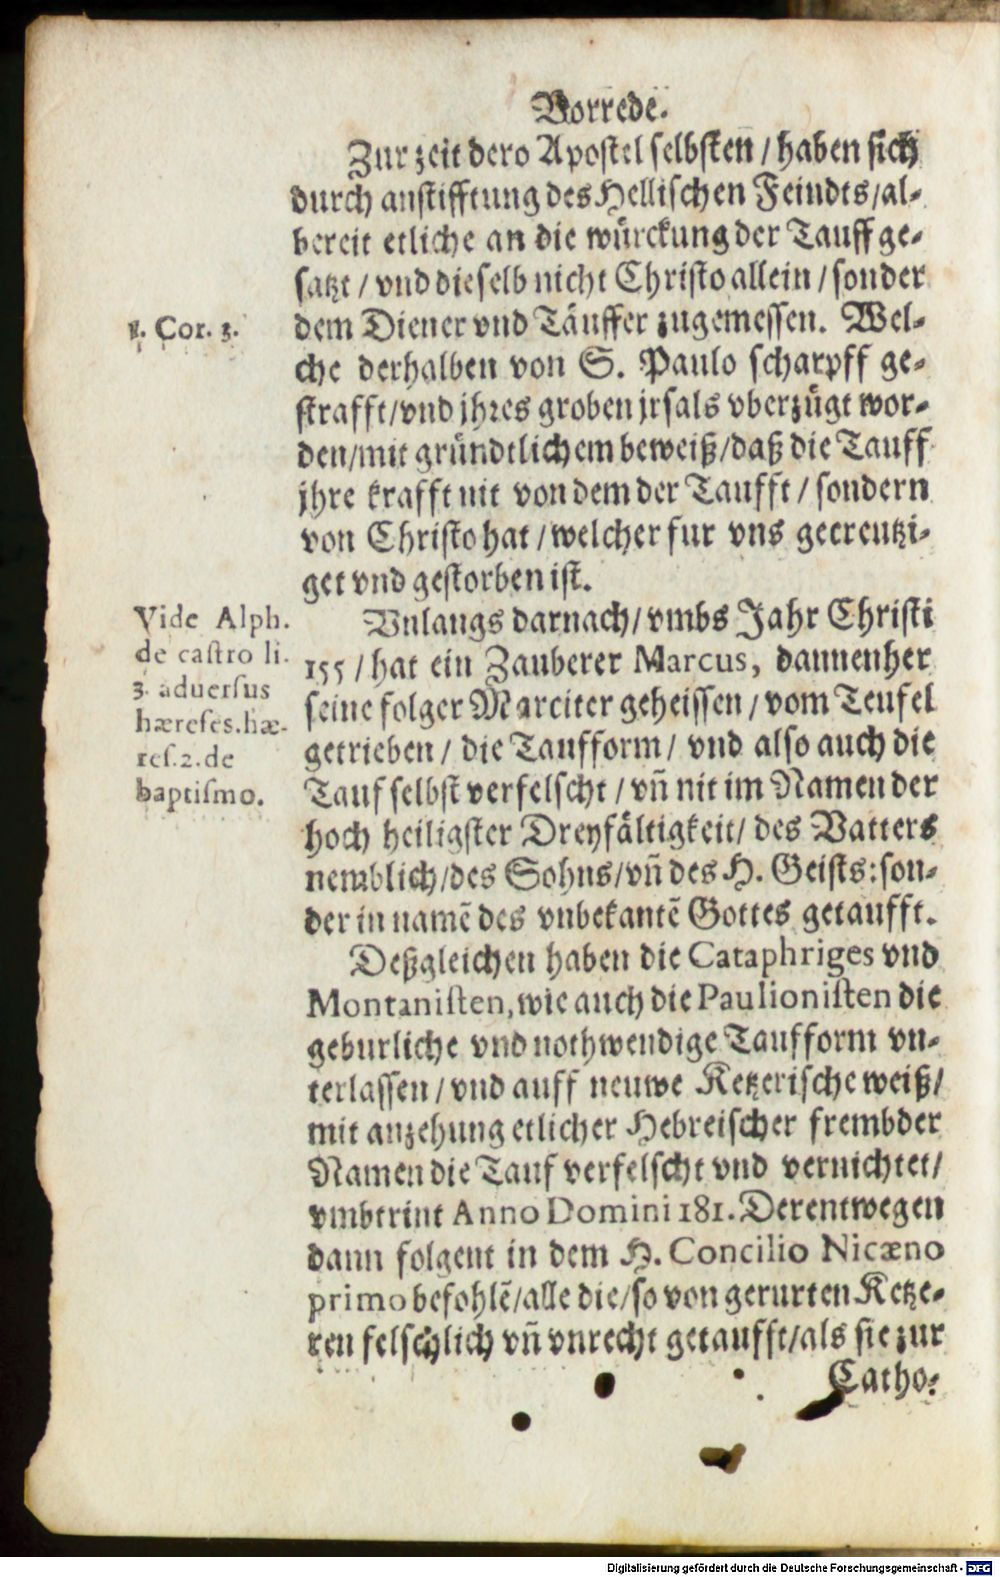 Vorrede.
Zur zeit dero Apostel selbsten / haben sich
durch anstifftung des Hellischen Feindts/al-
bereit etliche an die würckung der Tauff ge-
satzt / vnd dieselb nicht Christo allein / sonder
dem Diener vnd Täuffer zugemessen. Wel-
che derhalben von S. Paulo scharpff ge-
strafft/vnd jhres groben jrsals vberzügt wor-
den/mit gründtlichem beweiß/daß die Tauff
jhre krafft nit von dem der Taufft / sondern
von Christo hat / welcher fur vns gecreutzi-
get vnd gestorben ist.
1. Cor. 3.
Vnlangs darnach/ vmbs Jahr Christi
155 / hat ein Zauberer Marcus, dannenher
seine folger Marciter geheissen / vom Teufel
getrieben / die Taufform / vnd also auch die
Tauf selbst verfelscht / vñ nit im Namen der
hoch heiligster Dreyfältigkeit/ des Vatters
nemblich/des Sohns/vñ des H. Geists: son-
der in namẽ des vnbekantẽ Gottes getaufft.
Vide Alph.
de castro li.
3. aduersus
hæreses.hæ-
res.2.de
baptismo.
Deßgleichen haben die Cataphriges vnd
Montanisten, wie auch die Paulionisten die
geburliche vnd nothwendige Taufform vn-
terlassen / vnd auff neuwe Ketzerische weiß/
mit anzehung etlicher Hebreischer frembder
Namen die Tauf verfelscht vnd vernichtet/
vmbtrint Anno Domini 181. Derentwegen
dann folgent in dem H. Concilio Nicæno
primo befohlẽ/alle die/so von gerurten Ketze-
ren felschlich vñ vnrecht getaufft/als sie zur
Catho-
Digitalisierung gefördert durch die Deutsche Forschungsgemeinschaft - DFG